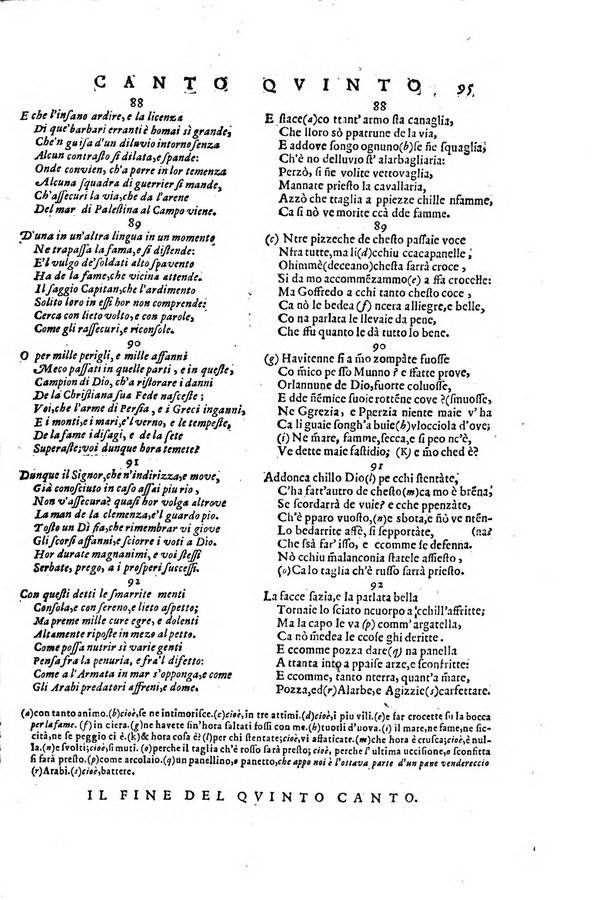 CANTO QVINTO. 95
88
E che l'insano ardire, e la licenza
Di que' barbari erranti è homai sì grande,
Che'n guisa d'un diluuio intorno senza
Alcun contrasto si dilata, e spande:
Onde conuien, ch'a porre in lor temenza
Alcuna squadra di guerrier si mande,
Ch'assecuri la via, che da l'arene
Del mar di Palestina al Campo viene.
89
D'una in un'altra lingua in un momento
Ne trapassa la fama, e si distende:
E'l vulgo de' soldati alto spauento
Ha de la fame, che vicina attende.
Il saggio Capitan, che l'ardimento
Solito loro in essi hor non comprende:
Cerca con lieto volto, e con parole,
Come gli rassecuri, e riconsole.
90
O per mille perigli, e mille affanni
Meco passati in quelle parti, e in queste,
Campion di Dio, ch'a ristorare i danni
De la Christiana sua Fede nasceste;
Voi, che l'arme di Persia, e i Greci inganni,
E i monti, e i mari, e'l verno, e le tempeste
De la fame i disagi, e de la sete
Superaste; voi dunque hora temete?
91
Dunque il Signor, che n'indirizza, e moue,
Già conosciuto in caso assai piu rio,
Non v'assecura? quasi hor volga altroue
La man de la clemenza, e'l guardo pio.
Tosto un Dì fia, che rimembrar vi giove
Gli scorsi affanni, e sciorre i voti a Dio.
Hor durate magnanimi, e voi stessi
Serbate, prego, a i prosperi successi.
92
Con questi detti le smarrite menti
Consola, e con sereno, e lieto aspetto;
Ma preme mille cure egre, e dolenti
Altamente riposte in mezo al petto.
Come possa nutrir sì varie genti
Pensa fra la penuria, e fra'l difetto:
Come a l'Armata in mar s'opponga, e come
Gli Arabi predatori affreni, e dome.
88
E stace(a)co ttant'armo sta canaglia,
Che lloro sò ppatrune de la via,
E addoue songo ognuno(b)se ñe squaglia;
Ch'è no delluuio st'alarbagliaria:
Perzò, si ñe volite vettouaglia,
Mannate priesto la cauallaria,
Azzò che ttaglia a ppiezze chille nfamme,
Ca si nò ve morite ccà dde famme.
89
(c) Ntre pizzeche de chesto passaie voce
Nfra tutte, ma li(d)cchiu ccacapanelle;
Ohimmè(deceano)chesta sarrà croce,
Si da mo accommēzammo(e) a ffa crocelle:
Ma Goffredo a cchi tanto chesto coce,
Ca nò le vedere (f) ncera alliegre, e belle,
Co na parlata le lleuaie da pene,
Che ffu quanto le dà tutto lo bene.
90
(g) Hauitenne sì a mò zompàte fuosse
Mico pe sso Munno? e mprese affritte,
Orlannune de Dio, fuorte coluosse,
E dde ñēmice suoie rottēne cove?(smuosse,
Ne Ggrezia, e Pperzia niente maie v'ha
Ca li guaie songh'a buie(b)vlocciola d'oue;
(i) Ne m̃are, famme, secca, e si peo nc'è,
Ve dette maie fastidio; (K) e mò ched è?
91
Addonca chillo Dio(l) pe cchi stentàte;
C'ha fatt'autro de chesto(m)ca mo è brēna;
Se scordarrà de vuie? e cche ppenzàte,
Ch'è pparo vuosto,(n)e sbota, e nò vu ntēn-
Lo bedarrite affè, si sepportàte, (na?
Che fsà far'isso, e ccomme se defenna.
Nò cchiu malanconia statele assiesto,
(o)Ca lo taglia ch'è russo sarrà priesto.
92
La facce sazia, e la parlata bella
Tornaie lo sciato ncuorpo a cchill'affritte;
Ma la capo le va (p) comm'argatella,
Ca nò m̃edea le ccose ghi deritte.
E ccomme pozza dare na panella
A ttanta intò a ppaise arze, e ccunfritte:
E ccomme, tanto nterra, quant'a mare,
Pozza, ed(r)Alarbe, e Agizzie(s)carfettare.
(a)con tanto animo.(b)cioè, se ne intimorisce.(c)cioè, in tre attimi.(d)cioè, i piu vili.(e)far crocette sù la bocca
per la fame.(f) in ciera.(g)ne hauete sin'hora saltati fossi con me.(h)tuorli d'uoua.(i) il mare, ne fame, ne sic-
cità, ne se peggio ci è.(k)& hora cosa è?(l)per chi stentate; cioè, vi affaticate.(m)che hora è crusca; cioè, è nul-
la.(n)e suolti; cioè, si muti.(o)perche il taglia ch'è rosso sarà presto; cioè, perche l'ultima uccisione, o sconfitta
si farà presto.(p)come arcolaio.(q)un panellino, o panetto, che appo noi è l'ottaua parte d'un pane vendereccio
(r)Arabi.(s)cioè, battere.
IL FINE DEL QVINTO CANTO.